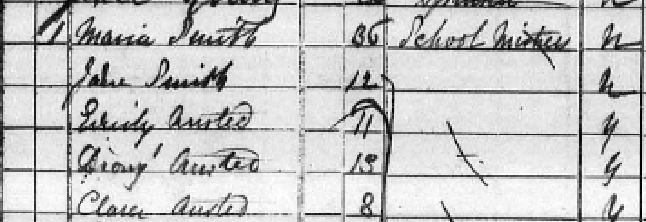 1 Maria Smith 36 School Mistress N
Jane Smith 12 N
Emily Ansted 11 y
Ansted 13 y
Clara Ansted 8 y